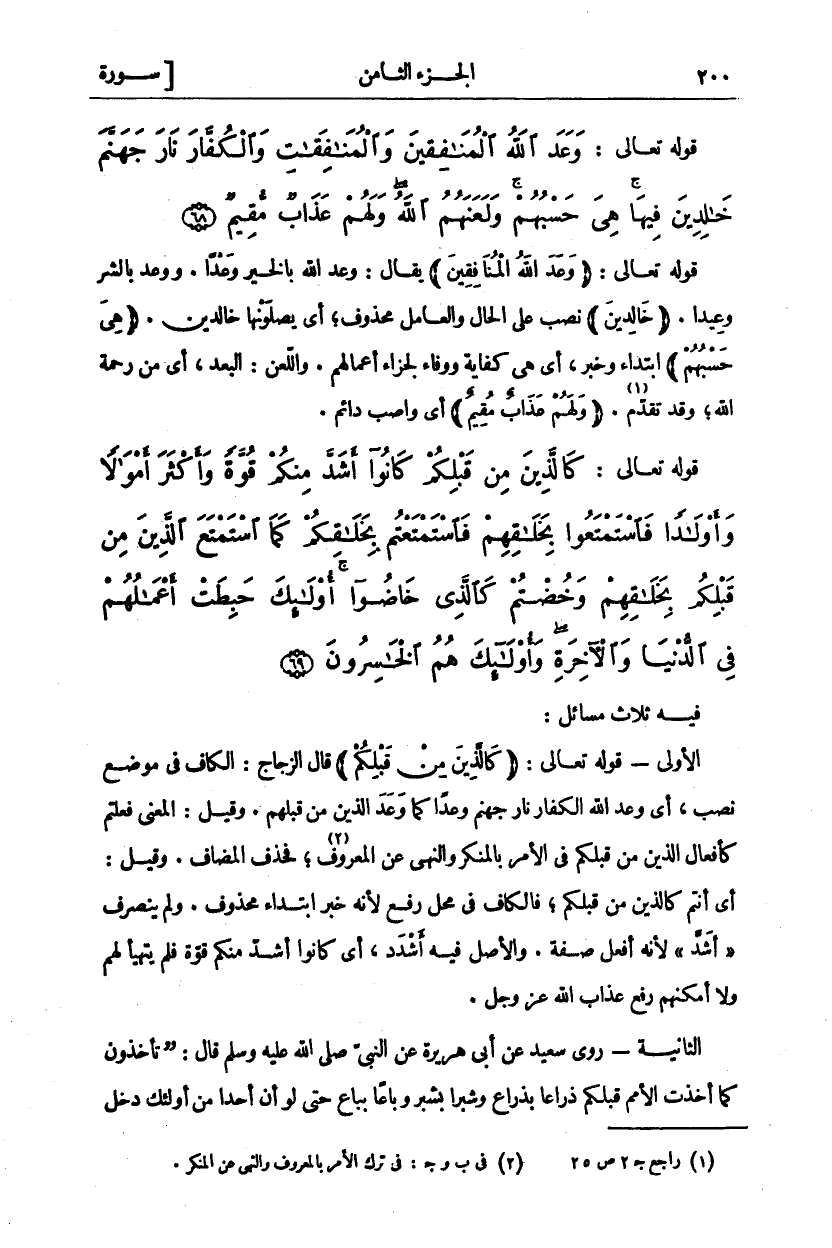 ٢٠٠ الجزء الثامن [ سورة
قوله تعالى : وَعَدَ ٱللَّهُ ٱلْمُنَٰفِقِينَ وَٱلْمُنَٰفِقَٰتِ وَٱلْكُفَّارَ نَارَ جَهَنَّمَ
خَٰلِدِينَ فِيهَا ۚ هِىَ حَسْبُهُمْ ۚ وَلَعَنَهُمُ ٱللَّهُ ۖ وَلَهُمْ عَذَابٌ مُّقِيمٌ ﴿٦٨﴾
قوله تعالى : ﴿ وَعَدَ اللهُ الْمُنَافِقِينَ ﴾ يقال : وعد الله بالخير وَعْدًا . ووعد بالشر
وعيدا . ﴿ خَالِدِينَ ﴾ نصب على الحال والعامل محذوف؛ أى يصلَوْنها خالدين . ﴿ هِىَ
حَسْبُهُمْ ﴾ ابتداء وخبر ، أى هى كفاية ووفاء لجزاء أعمالهم . واللّعن : البعد ، أى من رحمة
الله؛ وقد تقدّم (١) . ﴿ وَلَهُمْ عَذَابٌ مُقِيمٌ ﴾ أى واصب دائم .
قوله تعالى : كَٱلَّذِينَ مِن قَبْلِكُمْ كَانُوٓا۟ أَشَدَّ مِنكُمْ قُوَّةً وَأَكْثَرَ أَمْوَٰلًا
وَأَوْلَٰدًا فَٱسْتَمْتَعُوا بِخَلَٰقِهِمْ فَٱسْتَمْتَعْتُم بِخَلَٰقِكُمْ كَمَا ٱسْتَمْتَعَ ٱلَّذِينَ مِن
قَبْلِكُم بِخَلَٰقِهِمْ وَخُضْتُمْ كَٱلَّذِى خَاضُوٓا ۚ أُو۟لَٰٓئِكَ حَبِطَتْ أَعْمَٰلُهُمْ
فِى ٱلدُّنْيَا وَٱلْآخِرَةِ ۖ وَأُو۟لَٰٓئِكَ هُمُ ٱلْخَٰسِرُونَ ﴿٦٩﴾
فيه ثلاث مسائل :
الأولى — قوله تعالى : ﴿ كَالَّذِينَ مِنْ قَبْلِكُمْ ﴾ قال الزجاج : الكاف فى موضع
نصب ، أى وعد الله الكفار نار جهنم وعدًا كما وَعَدَ الذين من قبلهم . وقيل : المعنى فعلتم
كأفعال الذين من قبلكم فى الأمر بالمنكر والنهى عن المعروف (٢) ؛ فحذف المضاف . وقيل :
أى أنتم كالذين من قبلكم ؛ فالكاف فى محل رفع لأنه خبر ابتداء محذوف . ولم ينصرف
« أشدّ » لأنه أفعل صفة . والأصل فيه أَشْدَد ، أى كانوا أشدّ منكم قوّة فلم يتهيأ لهم
ولا أمكنهم رفع عذاب الله عز وجل .
الثانية — روى سعيد عن أبى هريرة عن النبىّ صلى الله عليه وسلم قال : ” تأخذون
كما أخذت الأمم قبلكم ذراعا بذراع وشبرا بشبر وباعًا بباع حتى لو أن أحدا من أولئك دخل
(١) راجع جـ ٢ ص ٢٥ (٢) فى ب و جـ : فى ترك الأمر بالمعروف والنهى عن المنكر .